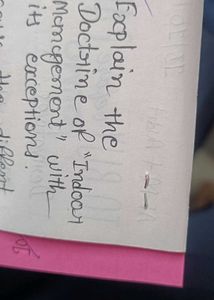 Explain the
Doctrine of "Indoor
Management" with
its exceptions.
the different